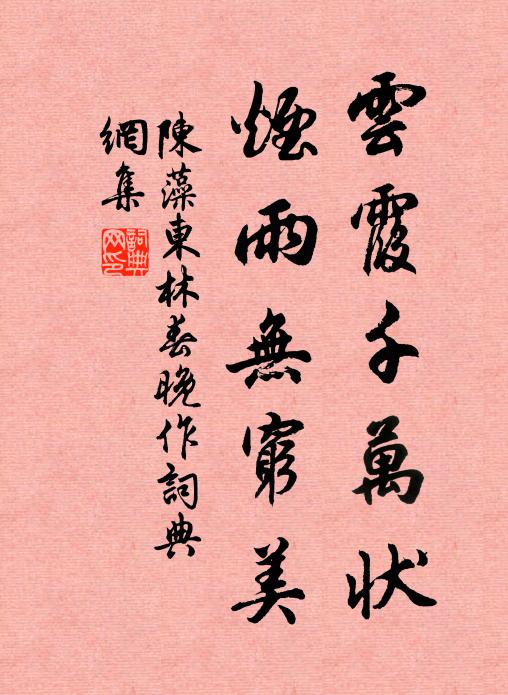 雲霞千萬狀
煙雨無窮美
陳藻東林春晚作詞典
網集
詞典
网印